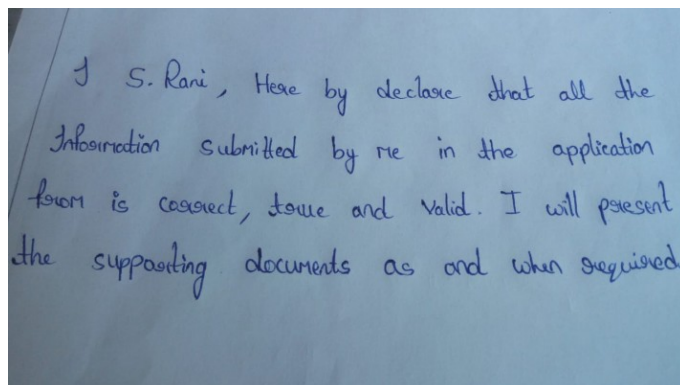 I S. Rani, Here by declare that all the
Information submitted by me in the application
form is correct, true and valid. I will present
the supporting documents as and when required